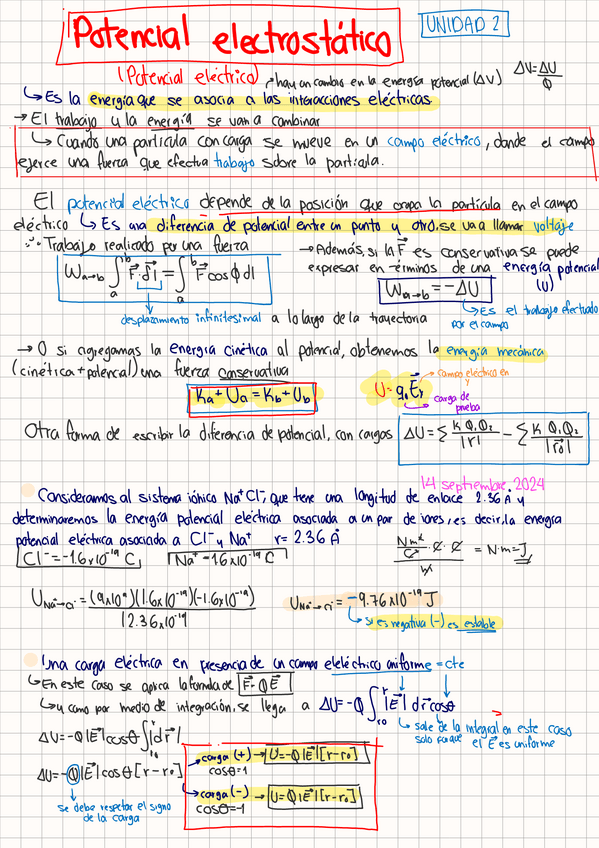 Potencial electrostático
UNIDAD 2
(Potencial eléctrico) → hay un cambio en la energía potencial (ΔV) ΔV = ΔU/Q
↳ Es la energía que se asocia a las interacciones eléctricas
→ El trabajo y la energía se van a combinar
↳ Cuando una partícula con carga se mueve en un campo eléctrico, donde el campo
ejerce una fuerza que efectua trabajo sobre la partícula.
El potencial eléctrico depende de la posición que ocupa la partícula en el campo
eléctrico ↳ Es una diferencia de potencial entre un punto y otro, se va a llamar voltaje
∴ Trabajo realizado por una fuerza
W a→b = ∫ₐᵇ F⃗·dl⃗ = ∫ₐᵇ F⃗ cos ϕ dl
desplazamiento infinitesimal a lo largo de la trayectoria
→ Además, si la F⃗ es conservativa se puede
expresar en términos de una energía potencial
(U)
W a→b = -ΔU
↳ Es el trabajo efectuado
por el campo
→ O si agregamos la energía cinética al potencial, obtenemos la energía mecánica
(cinética + potencial) una fuerza conservativa
Ka + Ua = Kb + Ub
U = q₀ E⃗y
→ campo eléctrico en
y
carga de
prueba
Otra forma de escribir la diferencia de potencial, con cargas ΔU = Σ K Q₁Q₂/|r⃗| - Σ K Q₁Q₂/|r⃗₀|
14 septiembre, 2024
Consideramos al sistema iónico Na⁺Cl⁻, que tiene una longitud de enlace 2.36 Å y
determinaremos la energía potencial eléctrica asociada a un par de iones, es decir, la energía
potencial eléctrica asociada a Cl⁻ y Na⁺ r = 2.36 Å
Cl⁻ = -1.6x10⁻¹⁹ C
Na⁺ = 1.6x10⁻¹⁹ C
Nm²/C² · C · C / m = N·m = J
U Na⁺→Cl⁻ = (9x10⁹)(1.6x10⁻¹⁹)(-1.6x10⁻¹⁹) / |2.36x10⁻¹⁰|
U Na⁺→Cl⁻ = -9.76x10⁻¹⁹ J
↳ si es negativa (-) es estable
Una carga eléctrica en presencia de un campo eleléctrico uniforme = cte
↳ En este caso se aplica la formula de F⃗ = Q E⃗
↳ y como por medio de integración, se llega a ΔU = -Q ∫ᵣ₀ʳ |E⃗| dr⃗ cosθ
↳ sale de la integral en este caso
solo porque el E⃗ es uniforme
ΔU = -Q|E⃗|cosθ ∫ᵣ₀ʳ |dr⃗|
ΔU = -Q|E⃗|cosθ [r - r₀]
se debe respetar el signo
de la carga
carga (+) → U = -Q|E⃗|[r - r₀]
cosθ = 1
carga (-) → U = Q|E⃗|[r - r₀]
cosθ = -1